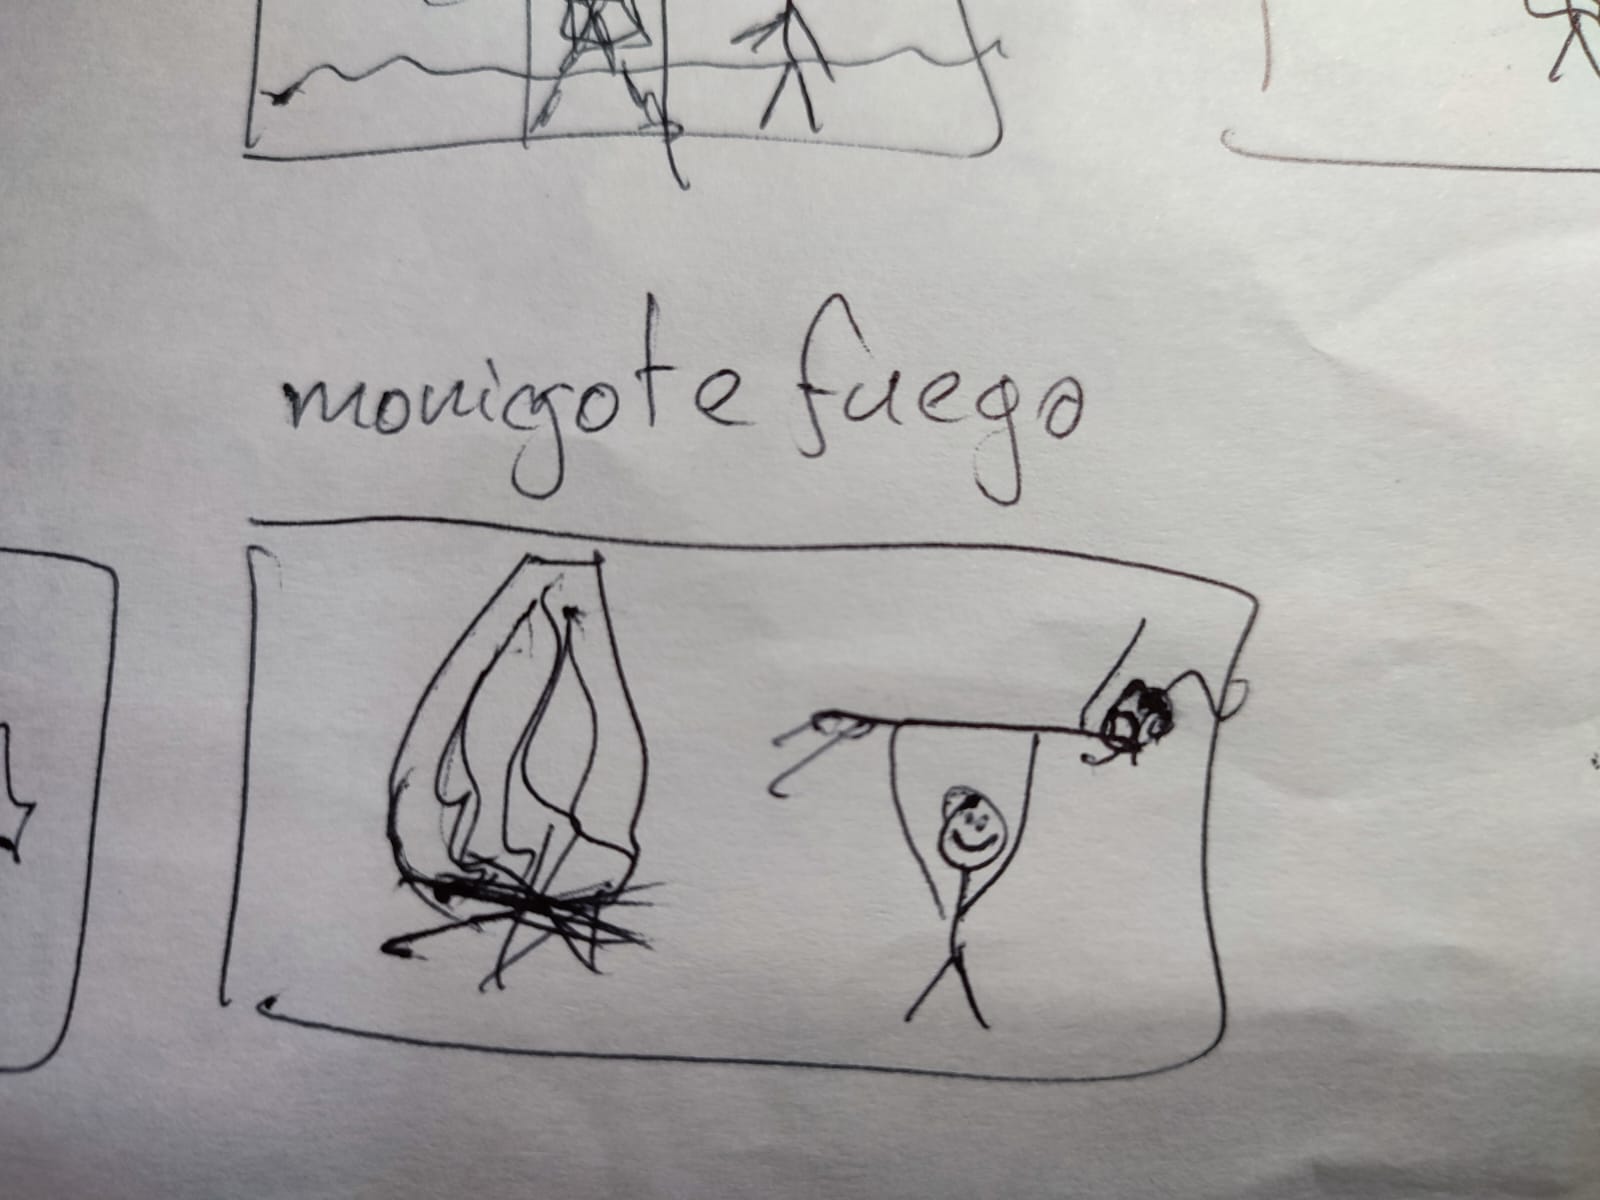 monigote fuego